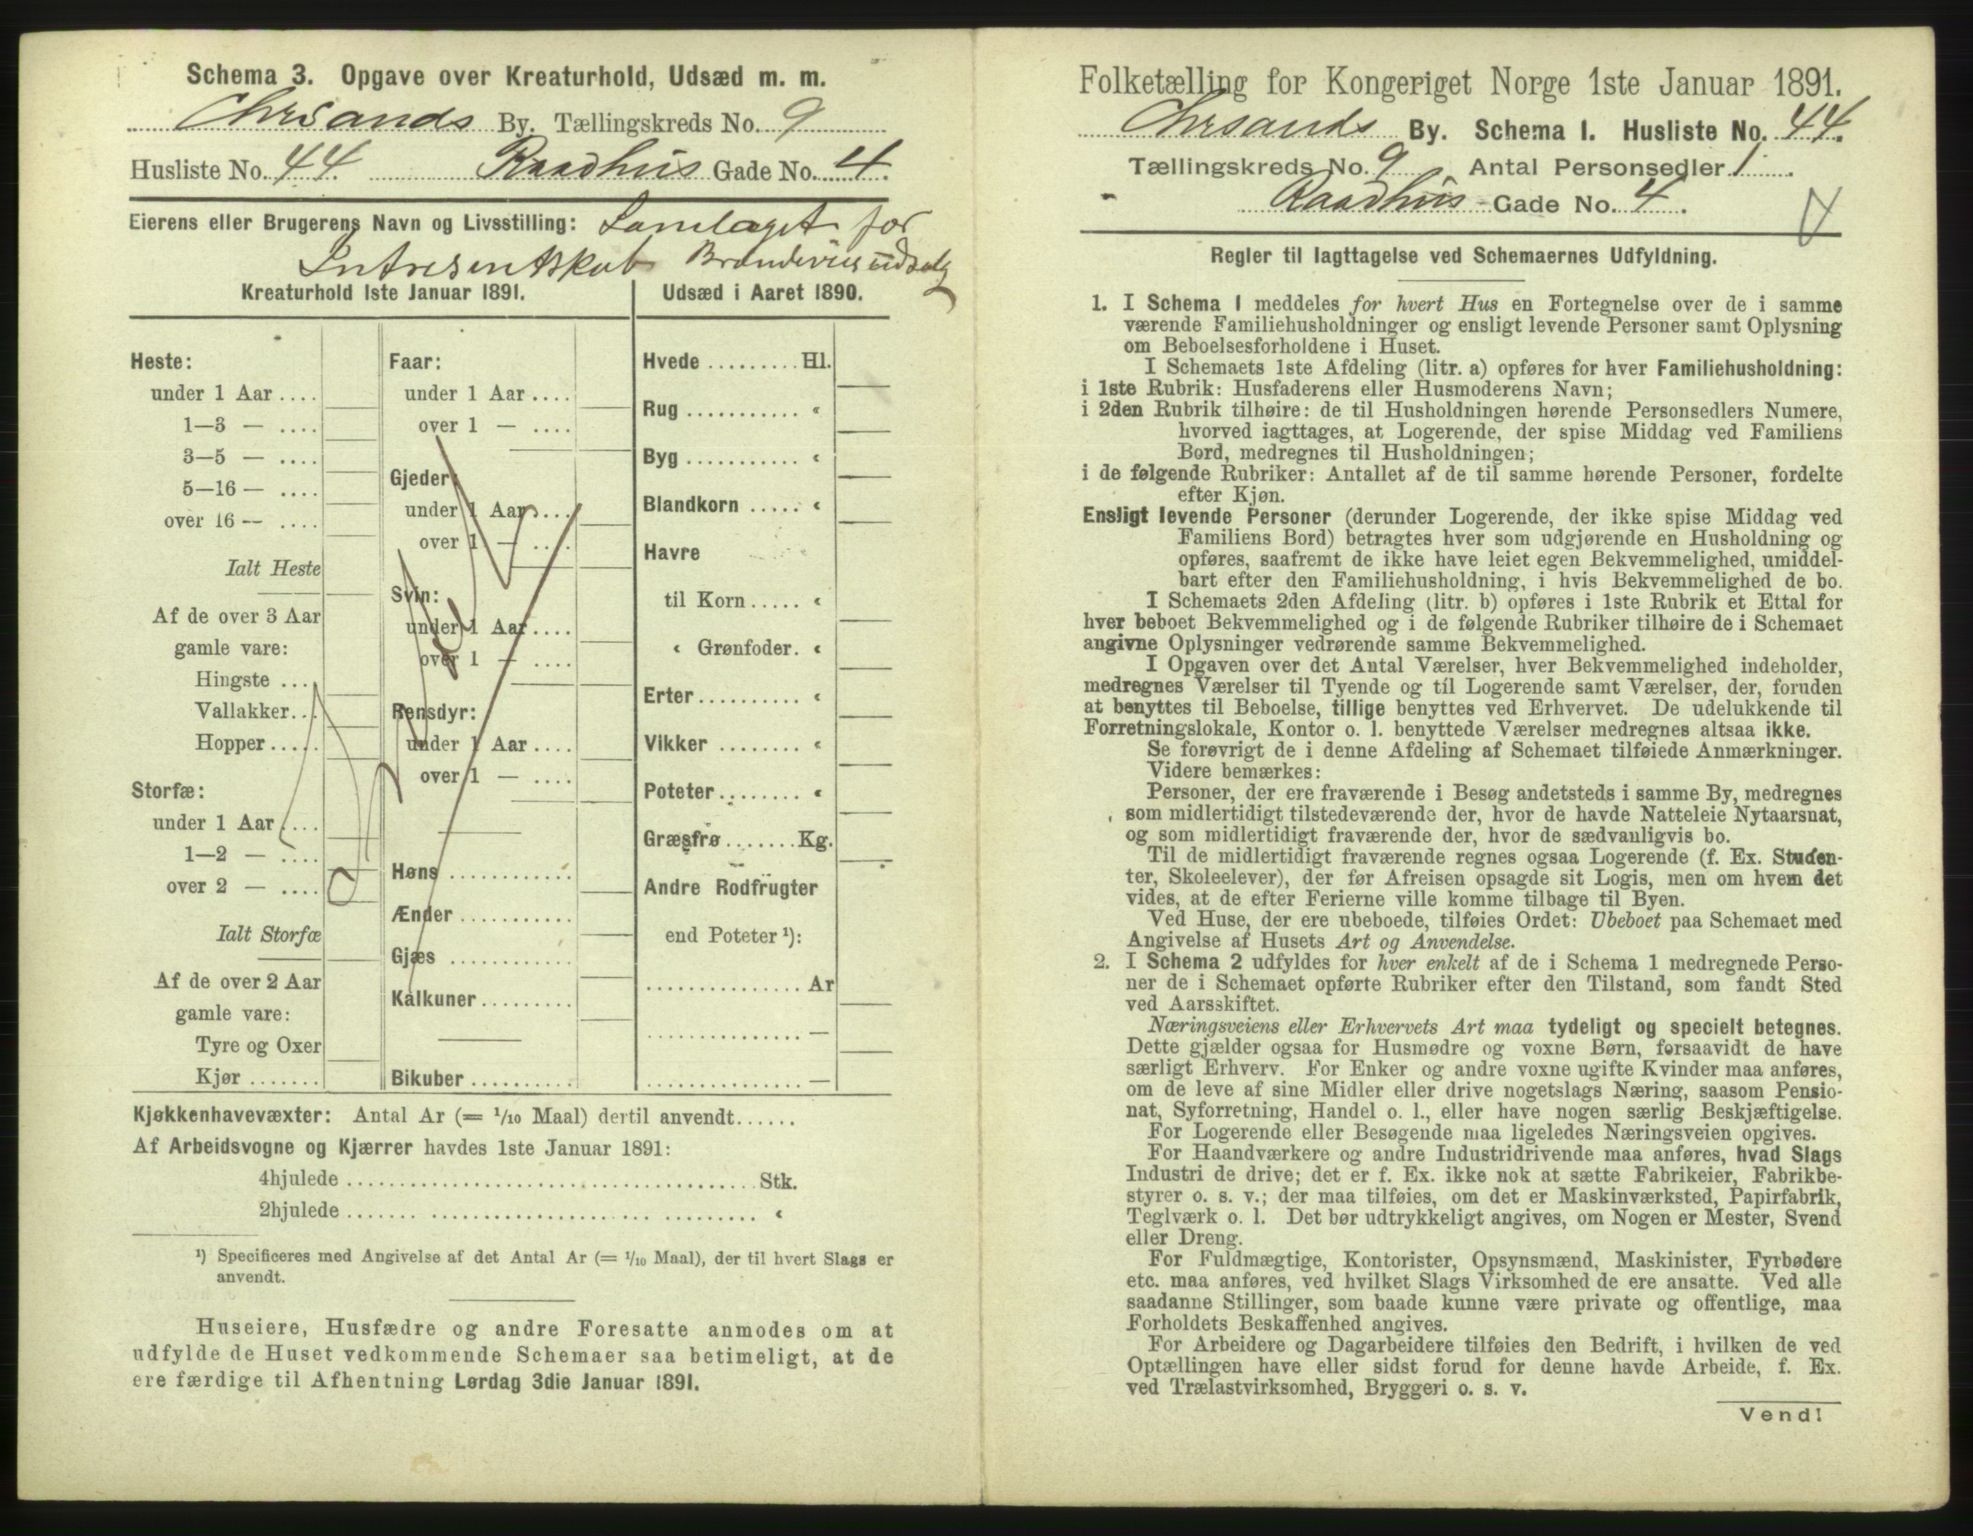 Schema 3. Opgave over Kreaturhold, Udsæd m. m.
Chrsands By. Tællingskreds No. 9
Husliste No. 44. Raadhus Gade No. 4.
Eierens eller Brugerens Navn og Livsstilling: Samlaget for
Intresentskab Brændevinsudsalg
Kreaturhold 1ste Januar 1891.
Heste:
under 1 Aar ....
1—3 — ....
3—5 — ....
5—16 — ....
over 16 — ....
Ialt Heste
Af de over 3 Aar
gamle vare:
Hingste ....
Vallakker...
Hopper.....
Storfæ:
under 1 Aar ....
1—2 — ....
over 2 — .... 0
Ialt Storfæ
Af de over 2 Aar
gamle vare:
Tyre og Oxer
Kjør .......
Faar:
under 1 Aar ....
over 1 — ....
Gjeder:
under 1 Aar ....
over 1 — ....
Svin:
under 1 Aar ....
over 1 — ....
Rensdyr:
under 1 Aar ....
over 1 — ....
Høns ............
Ænder ...........
Gjæs ............
Kalkuner.........
Bikuber ..........
Udsæd i Aaret 1890.
Hvede ......... Hl.
Rug ........... «
Byg ........... «
Blandkorn ..... «
Havre
til Korn ..... «
« Grønfoder. «
Erter.......... «
Vikker ........ «
Poteter........ «
Græsfrø ....... Kg.
Andre Rodfrugter
end Poteter ¹):
............... Ar
............... —
............... —
Kjøkkenhavevæxter: Antal Ar (= 1/10 Maal) dertil anvendt......
Af Arbeidsvogne og Kjærrer havdes 1ste Januar 1891:
4hjulede ..................................... Stk.
2hjulede ..................................... «
¹) Specificeres med Angivelse af det Antal Ar (= 1/10 Maal), der til hvert Slags er
anvendt.
Huseiere, Husfædre og andre Foresatte anmodes om at
udfylde de Huset vedkommende Schemaer saa betimeligt, at de
ere færdige til Afhentning Lørdag 3die Januar 1891.
Folketælling for Kongeriget Norge 1ste Januar 1891.
Chrsands By. Schema 1. Husliste No. 44.
Tællingskreds No. 9 Antal Personsedler 1 .
Raadhus - Gade No. 4 .
Regler til Iagttagelse ved Schemaernes Udfyldning.
1. I Schema 1 meddeles for hvert Hus en Fortegnelse over de i samme
værende Familiehusholdninger og ensligt levende Personer samt Oplysning
om Beboelsesforholdene i Huset.
I Schemaets 1ste Afdeling (litr. a) opføres for hver Familiehusholdning:
i 1ste Rubrik: Husfaderens eller Husmoderens Navn;
i 2den Rubrik tilhøire: de til Husholdningen hørende Personsedlers Numere,
hvorved iagttages, at Logerende, der spise Middag ved Familiens
Bord, medregnes til Husholdningen;
i de følgende Rubriker: Antallet af de til samme hørende Personer, fordelte
efter Kjøn.
Ensligt levende Personer (derunder Logerende, der ikke spise Middag ved
Familiens Bord) betragtes hver som udgjørende en Husholdning og
opføres, saafremt de ikke have leiet egen Bekvemmelighed, umiddel-
bart efter den Familiehusholdning, i hvis Bekvemmelighed de bo.
I Schemaets 2den Afdeling (litr. b) opføres i 1ste Rubrik et Ettal for
hver beboet Bekvemmelighed og i de følgende Rubriker tilhøire de i Schemaet
angivne Oplysninger vedrørende samme Bekvemmelighed.
I Opgaven over det Antal Værelser, hver Bekvemmelighed indeholder,
medregnes Værelser til Tyende og til Logerende samt Værelser, der, foruden
at benyttes til Beboelse, tillige benyttes ved Erhvervet. De udelukkende til
Forretningslokale, Kontor o. l. benyttede Værelser medregnes altsaa ikke.
Se forøvrigt de i denne Afdeling af Schemaet tilføiede Anmærkninger.
Videre bemærkes:
Personer, der ere fraværende i Besøg andetsteds i samme By, medregnes
som midlertidigt tilstedeværende der, hvor de havde Natteleie Nytaarsnat,
og som midlertidigt fraværende der, hvor de sædvanligvis bo.
Til de midlertidigt fraværende regnes ogsaa Logerende (f. Ex. Studen-
ter, Skoleelever), der før Afreisen opsagde sit Logis, men om hvem det
vides, at de efter Ferierne ville komme tilbage til Byen.
Ved Huse, der ere ubeboede, tilføies Ordet: Ubeboet paa Schemaet med
Angivelse af Husets Art og Anvendelse.
2. I Schema 2 udfyldes for hver enkelt af de i Schema 1 medregnede Perso-
ner de i Schemaet opførte Rubriker efter den Tilstand, som fandt Sted
ved Aarsskiftet.
Næringsveiens eller Erhvervets Art maa tydeligt og specielt betegnes.
Dette gjælder ogsaa for Husmødre og voxne Børn, forsaavidt de have
særligt Erhverv. For Enker og andre voxne ugifte Kvinder maa anføres,
om de leve af sine Midler eller drive nogetslags Næring, saasom Pensio-
nat, Syforretning, Handel o. l., eller have nogen særlig Beskjæftigelse.
For Logerende eller Besøgende maa ligeledes Næringsveien opgives.
For Haandværkere og andre Industridrivende maa anføres, hvad Slags
Industri de drive; det er f. Ex. ikke nok at sætte Fabrikeier, Fabrikbe-
styrer o. s. v.; der maa tilføies, om det er Maskinværksted, Papirfabrik,
Teglværk o. l. Det bør udtrykkeligt angives, om Nogen er Mester, Svend
eller Dreng.
For Fuldmægtige, Kontorister, Opsynsmænd, Maskinister, Fyrbødere
etc. maa anføres, ved hvilket Slags Virksomhed de ere ansatte. Ved alle
saadanne Stillinger, som baade kunne være private og offentlige, maa
Forholdets Beskaffenhed angives.
For Arbeidere og Dagarbeidere tilføies den Bedrift, i hvilken de ved
Optællingen have eller sidst forud for denne havde Arbeide, f. Ex.
ved Trælastvirksomhed, Bryggeri o. s. v.
Vend!